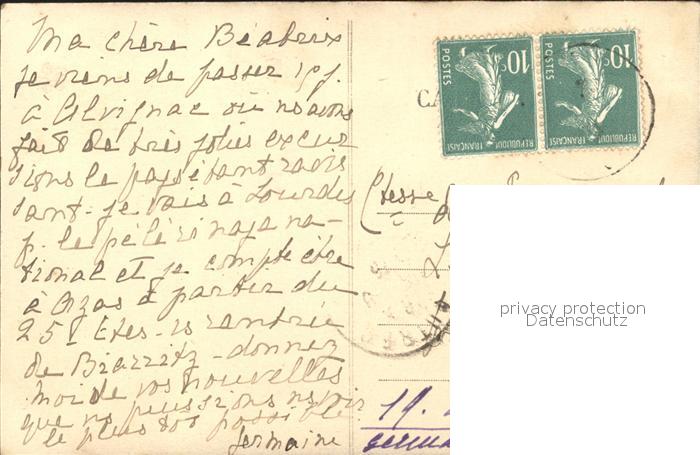 Ma chère Béatrix
je viens de passer 15 j.
à Alvignac où ns avons
fait de très jolies excur
sions le pays étant ravis
sant - je vais à Lourdes
p. le pélérinage na-
tional et je compte être
à Azas à partir du
25 - Etes-vs rentrée
de Biarritz - donnez
moi de vos nouvelles
que ns puissions ns voir
le plus tôt possible
Germaine
10c 10c
POSTES POSTES
REPUBLIQUE FRANÇAISE REPUBLIQUE FRANÇAISE
CA
Ctesse
privacy protection
Datenschutz
19.